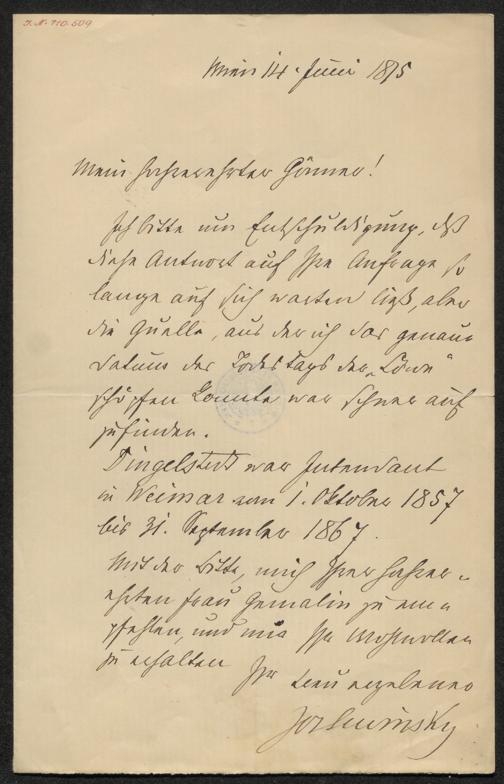 J.N. 110.609
Wien 14. Juni 1895
Mein hochverehrter Gönner!
Ich bitte um Entschuldigung, daß
diese Antwort auf Ihre Anfrage so
lange auf sich warten ließ, aber
die Quelle, aus der ich das genaue
Datum des Todestags der „Löwe“
schöpfen konnte war schwer auf
zufinden.
Dingelstedt war Intendant
in Weimar vom 1. Oktober 1857
bis 31. September 1867.
Mit der Bitte, mich Ihrer hochver-
ehrten Frau Gemalin zu em-
pfehlen, und mir Ihr Wohlwollen
zu erhalten
Ihr treu ergebener
Jos Lewinsky